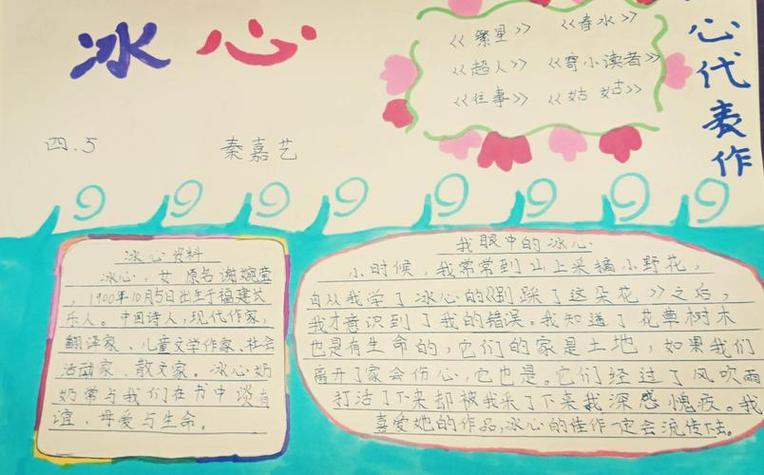 冰心
《繁星》 《春水》
《超人》 《寄小读者》
《往事》 《姑姑》
心代表作
四.5 秦嘉艺
冰心资料
冰心,女 原名谢婉莹
,1900年10月5日出生于福建长
乐人。中国诗人,现代作家,
翻译家、儿童文学作家、社会
活动家、散文家。冰心奶
奶常与我们在书中谈有
谊、母爱与生命。
我眼中的冰心
小时候,我常常到山上采摘小野花,
自从我学了冰心的《别踩了这朵花》之后,
我才意识到了我的错误。我知道了花草树木
也是有生命的,它们的家是土地,如果我们
离开了家会伤心,它也是。它们经过了风吹雨
打活了下来却被我采了下来我深感愧疚。我
喜爱她的作品,冰心的佳作一定会流传下去。